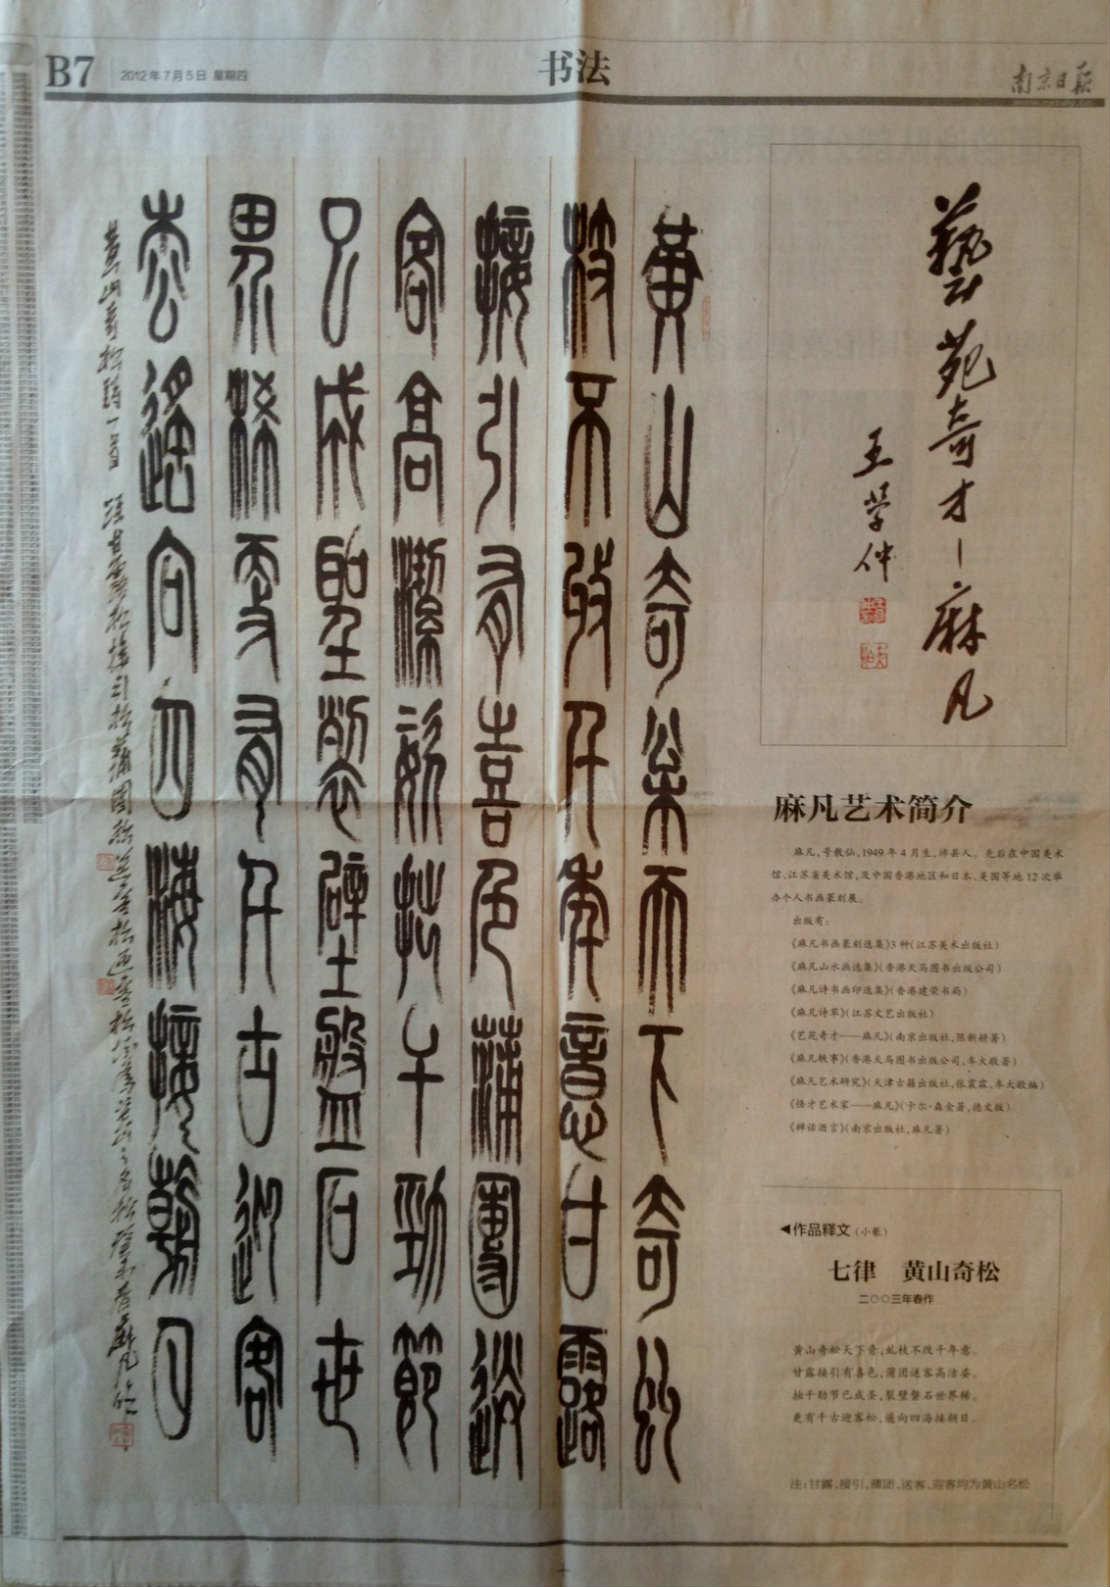 B7
2012年7月5日 星期四
书法
南京日报
藝苑奇才—麻凡
王学仲
麻凡艺术简介
麻凡,号散仙,1949年4月生,沛县人。先后在中国美术
馆、江苏省美术馆,及中国香港地区和日本、美国等地12次举
办个人书画篆刻展。
出版有:
《麻凡书画篆刻选集》3种(江苏美术出版社)
《麻凡山水画选集》(香港天马图书出版公司)
《麻凡诗书画印选集》(香港建荣书局)
《麻凡诗草》(江苏文艺出版社)
《艺苑奇才——麻凡》(南京出版社,陈新耕著)
《麻凡轶事》(香港天马图书出版公司,牟大殿著)
《麻凡艺术研究》(天津古籍出版社,张震霖、牟大殿编)
《怪才艺术家——麻凡》(卡尔·森金著,德文版)
《禅语酒言》(南京出版社,麻凡著)
◀作品释文(小篆)
七律 黄山奇松
二〇〇三年春作
黄山奇松天下奇,虬枝不改千年意。
甘露接引有喜色,蒲团送客高洁姿。
抽千劲节已成圣,裂壁盘石世界稀。
更有千古迎客松,遥向四海接朝日。
注:甘露、接引、蒲团、送客、迎客均为黄山名松
黃山奇松天下奇虬
枝不改千年意甘露
接引有喜色蒲團送
客高潔姿抽千勁節
已成聖裂壁盤石世
界稀更有千古迎客
松遙向四海接朝日